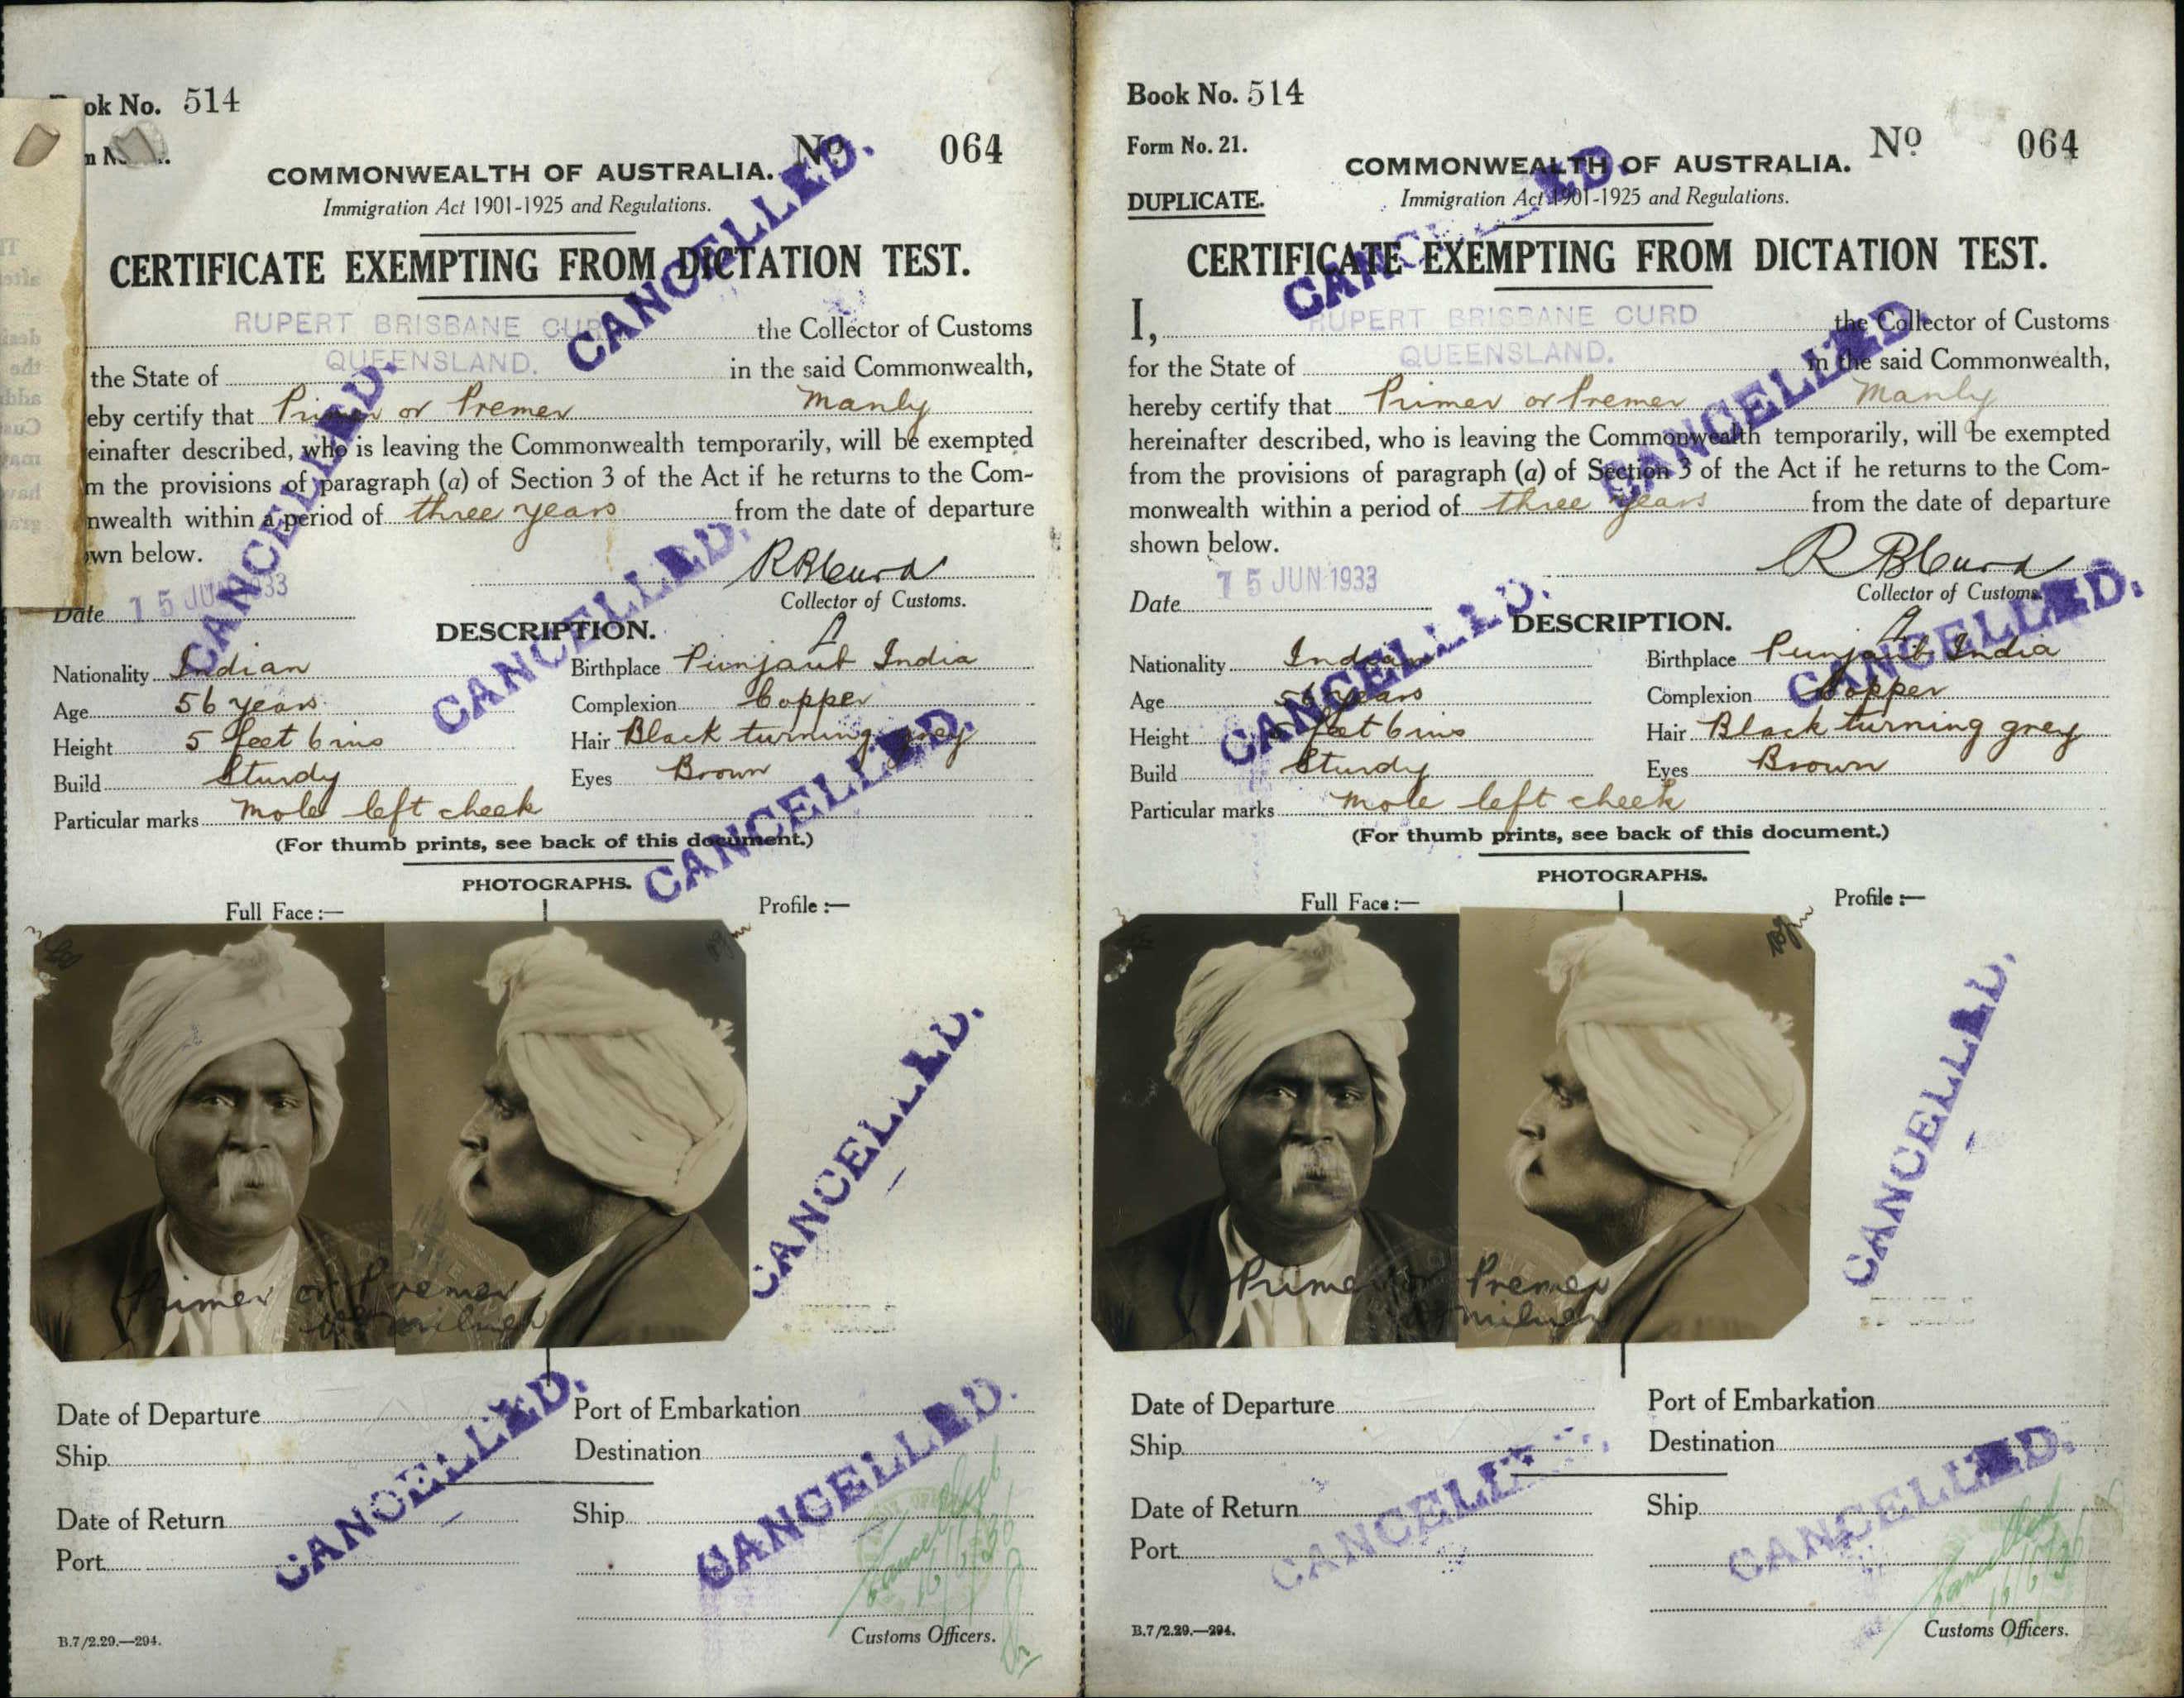 ok No. 514
No 064
COMMONWEALTH OF AUSTRALIA.
Immigration Act 1901-1925 and Regulations.
CERTIFICATE EXEMPTING FROM DICTATION TEST.
RUPERT BRISBANE CUR the Collector of Customs
the State of QUEENSLAND. in the said Commonwealth,
eby certify that Primer or Premer Manly
einafter described, who is leaving the Commonwealth temporarily, will be exempted
m the provisions of paragraph (a) of Section 3 of the Act if he returns to the Com-
nwealth within a period of three years from the date of departure
own below.
R B Curd
Date 15 JUN 1933
Collector of Customs.
DESCRIPTION.
Nationality Indian Birthplace Punjaub India
Age 56 years Complexion Copper
Height 5 feet 6 ins Hair Black turning grey
Build Sturdy Eyes Brown
Particular marks Mole left cheek
(For thumb prints, see back of this document.)
PHOTOGRAPHS.
Full Face :— Profile :—
Primer or Premer
Date of Departure Port of Embarkation
Ship Destination
Date of Return Ship
Port
Cancelled
B.7/2.29.—294. Customs Officers.
CANCELLED.
CANCELLED.
CANCELLED.
CANCELLED.
CANCELLED.
CANCELLED.
CANCELLED.
Book No. 514
Form No. 21.
No 064
COMMONWEALTH OF AUSTRALIA.
DUPLICATE.
Immigration Act 1901-1925 and Regulations.
CERTIFICATE EXEMPTING FROM DICTATION TEST.
I, RUPERT BRISBANE CURD the Collector of Customs
for the State of QUEENSLAND. in the said Commonwealth,
hereby certify that Primer or Premer Manly
hereinafter described, who is leaving the Commonwealth temporarily, will be exempted
from the provisions of paragraph (a) of Section 3 of the Act if he returns to the Com-
monwealth within a period of three years from the date of departure
shown below.
R B Curd
Date 15 JUN 1933
Collector of Customs.
DESCRIPTION.
Nationality Indian Birthplace Punjaub India
Age 56 years Complexion Copper
Height feet 6 ins Hair Black turning grey
Build Sturdy Eyes Brown
Particular marks Mole left cheek
(For thumb prints, see back of this document.)
PHOTOGRAPHS.
Full Face :— Profile :—
Primer or Premer
Date of Departure Port of Embarkation
Ship Destination
Date of Return Ship
Port
Cancelled
B.7/2.29.—294. Customs Officers.
CANCELLED.
CANCELLED.
CANCELLED.
CANCELLED.
CANCELLED.
CANCELLED.
CANCELLED.